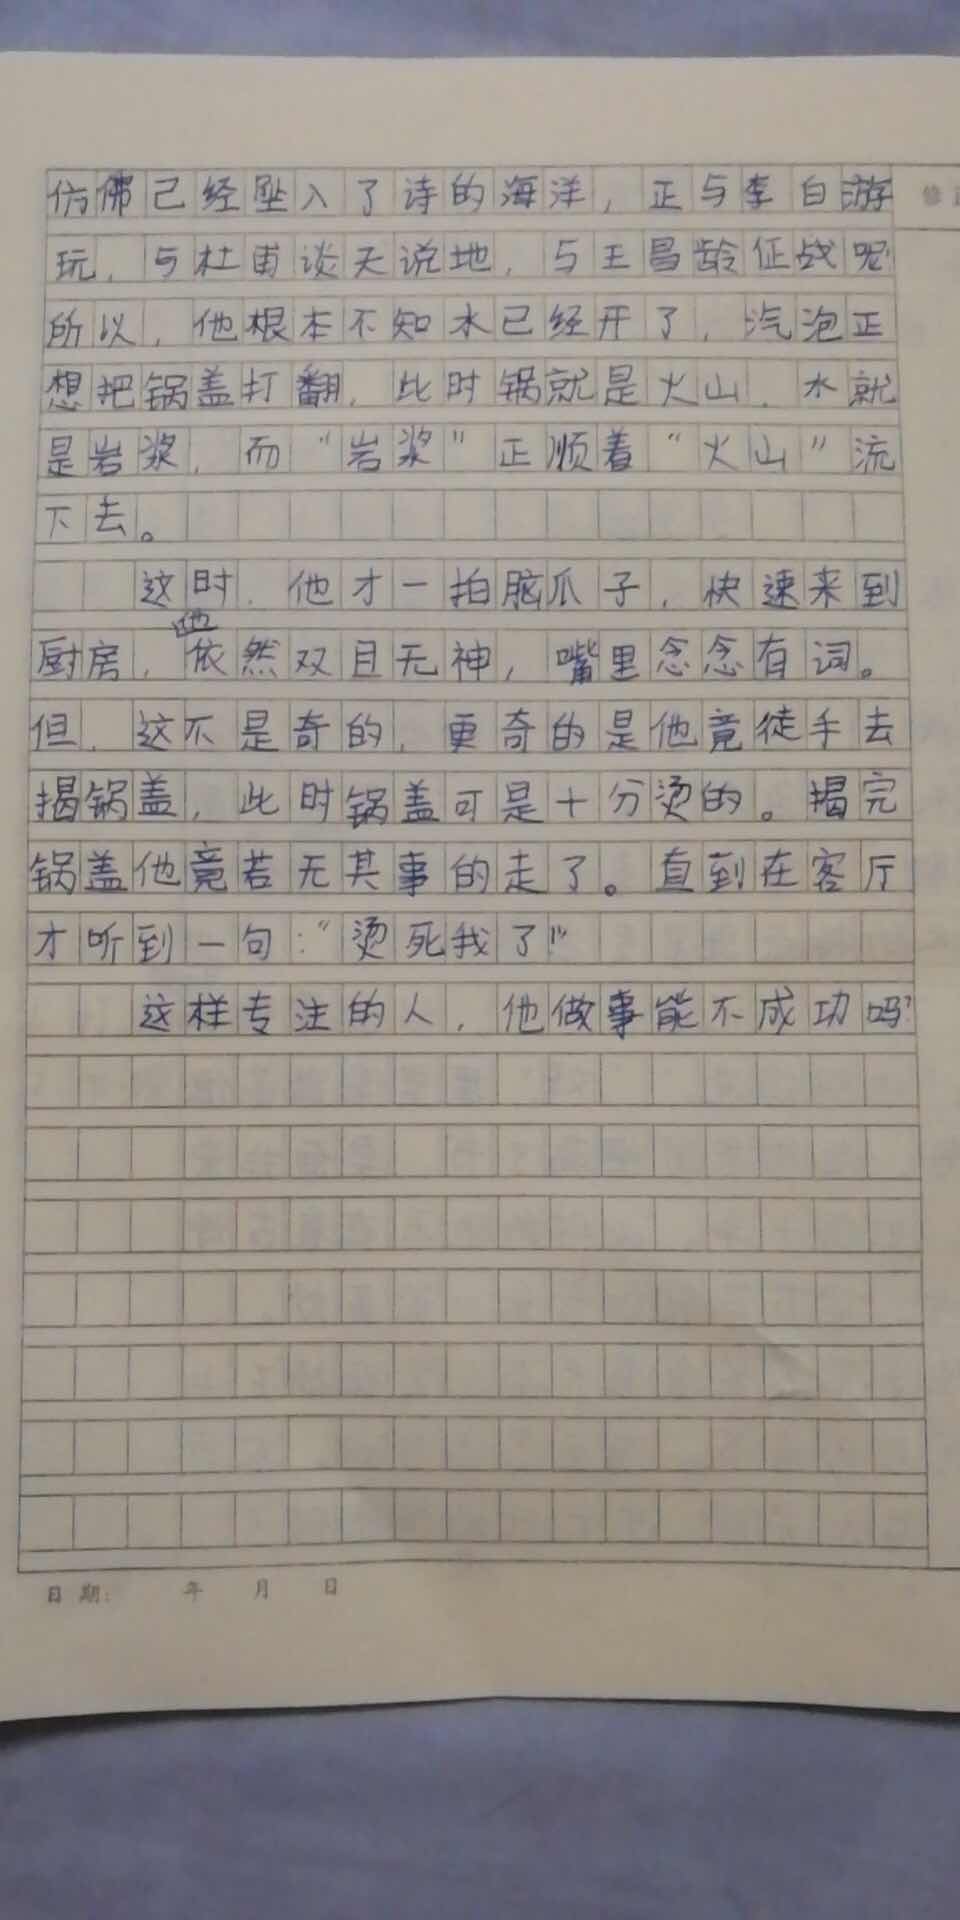 仿佛已经坠入了诗的海洋，正与李白游
修
玩，与杜甫谈天说地，与王昌龄征战呢
所以，他根本不知水已经开了，汽泡正
想把锅盖打翻，此时锅就是火山，水就
是岩浆，而“岩浆”正顺着“火山”流
下去。
这时，他才一拍脑瓜子，快速来到
他
厨房，依然双目无神，嘴里念念有词。
但，这不是奇的，更奇的是他竟徒手去
揭锅盖，此时锅盖可是十分烫的。揭完
锅盖他竟若无其事的走了。直到在客厅
才听到一句：“烫死我了！”
这样专注的人，他做事能不成功吗？
日期： 年 月 日